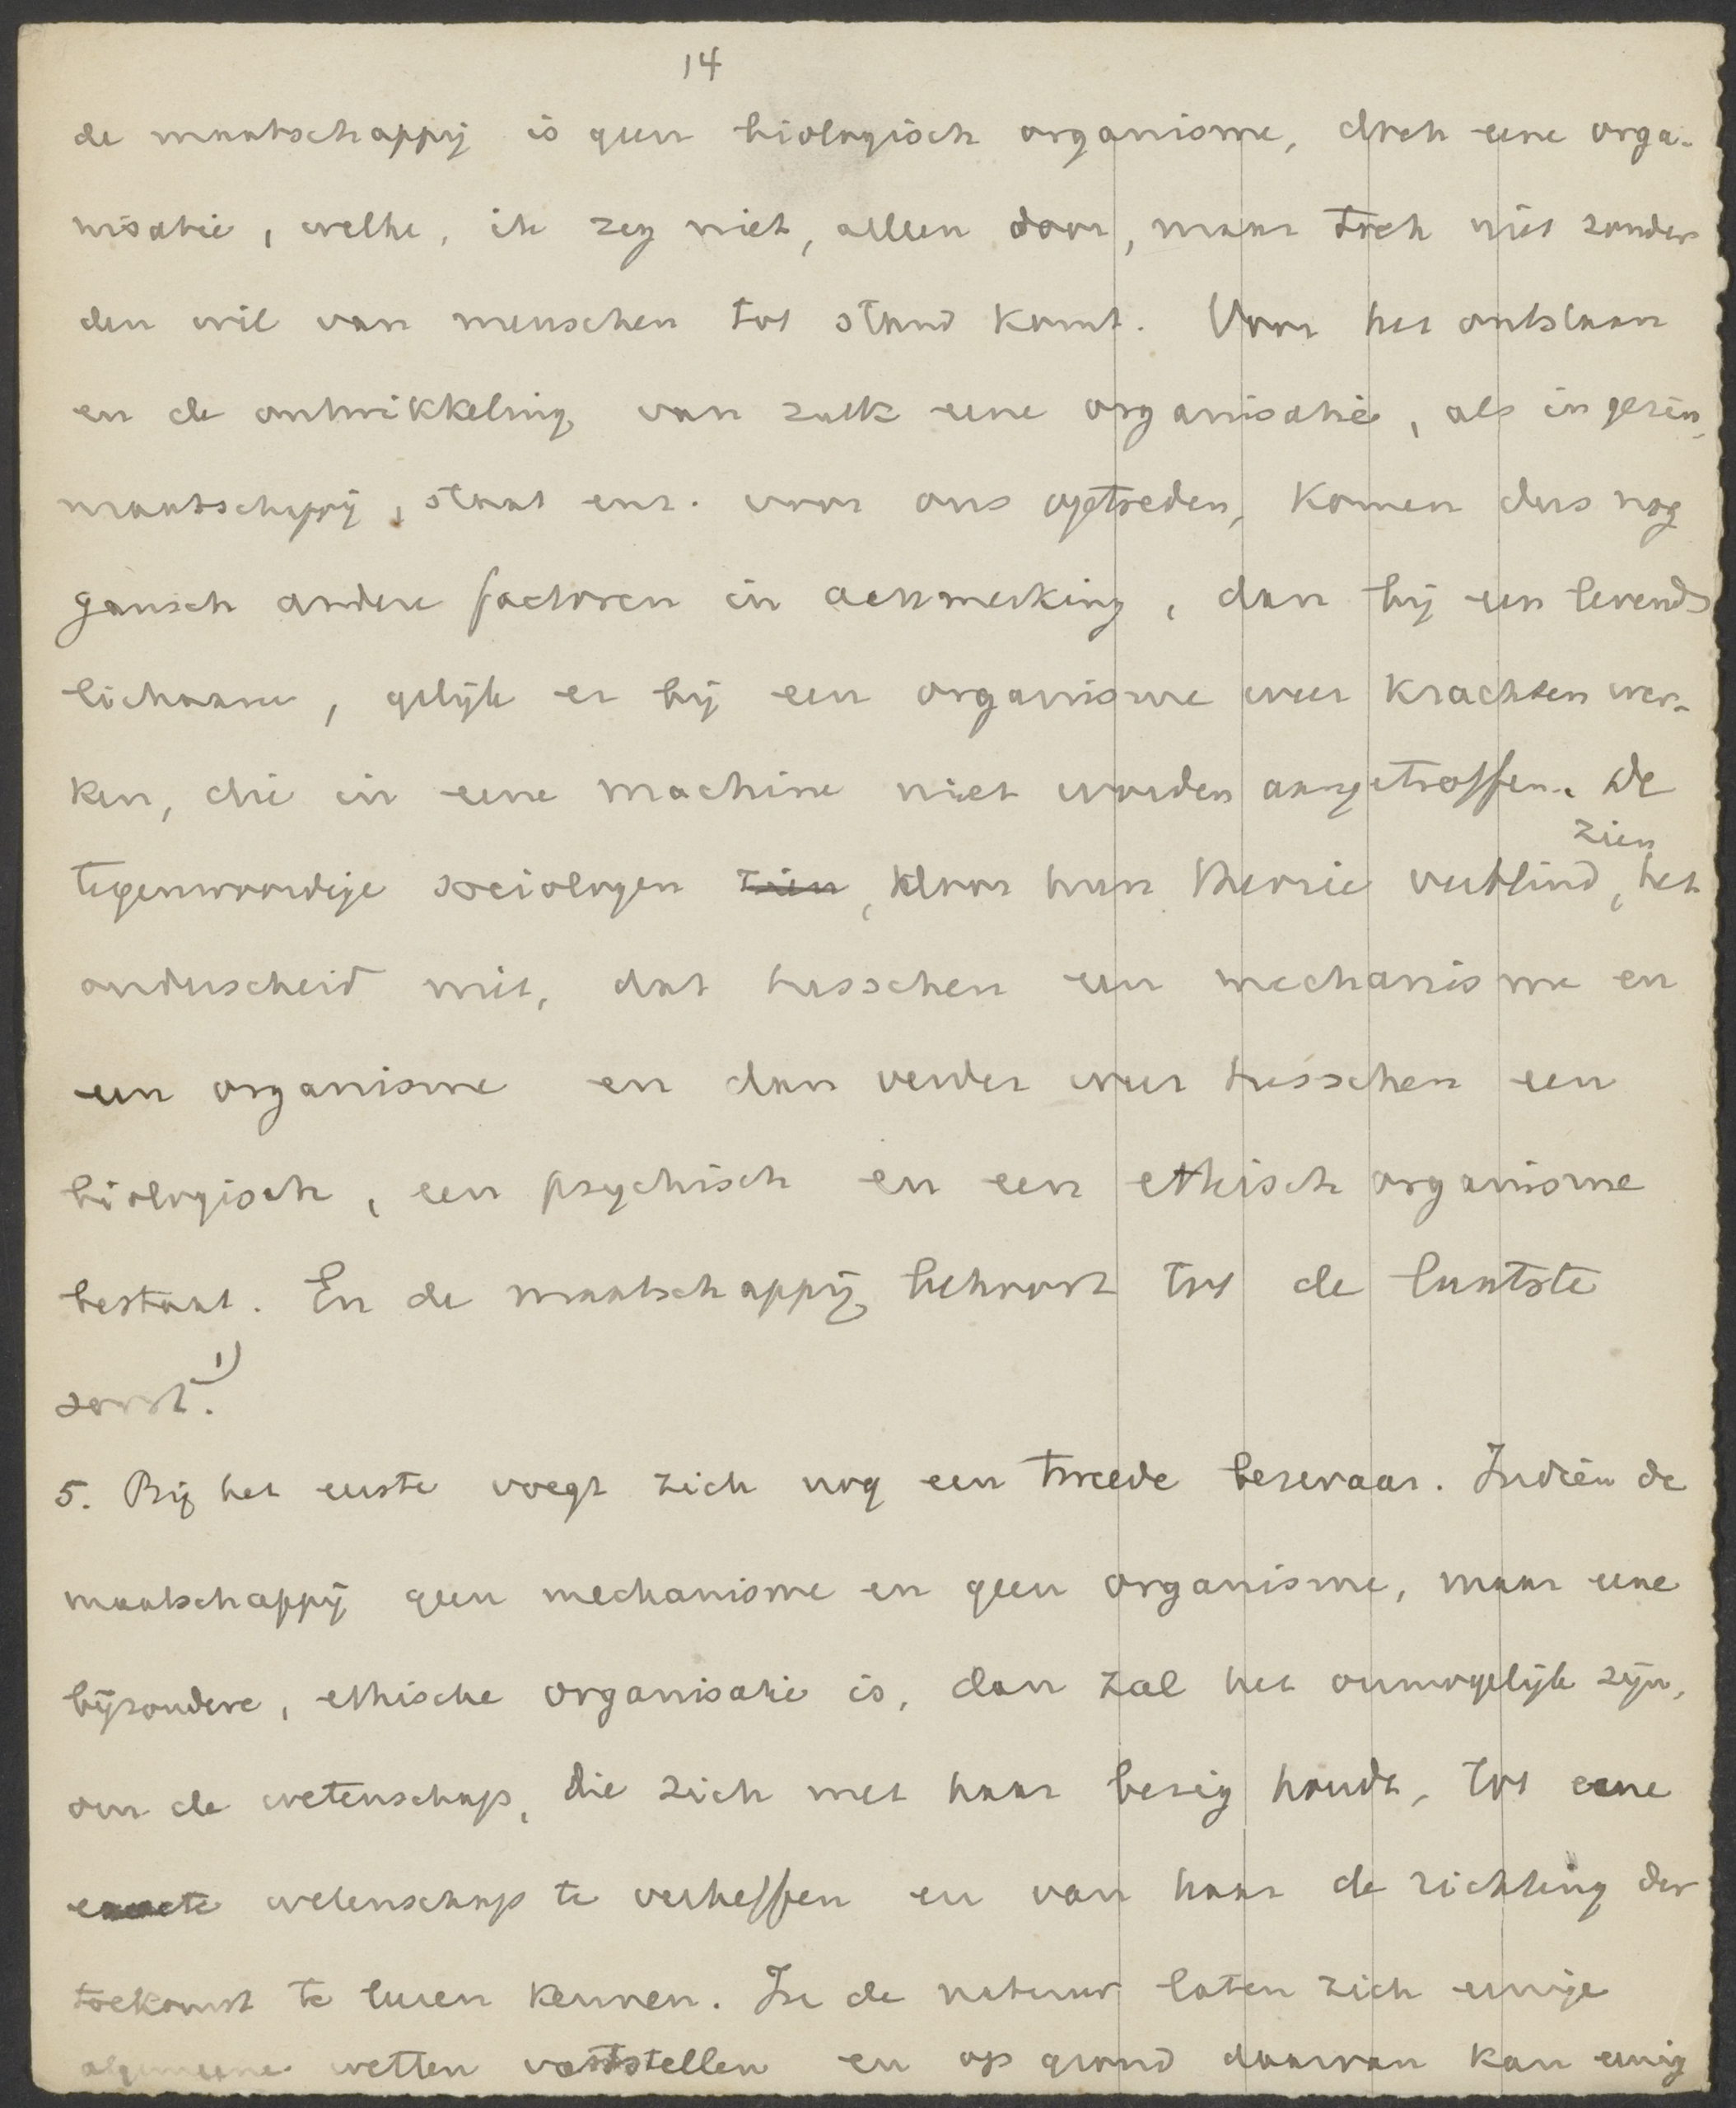 14
de maatschappij is geen biologisch organisme, doch eene orga-
nisatie, welke, ik zeg niet, alleen door, maar toch niet zonder
den wil van menschen tot stand komt. Voor het ontstaan
en de ontwikkeling van zulk eene organisatie, als in gezin,
maatschappij, staat enz. voor ons optreden, komen dus nog
gansch andere factoren in aanmerking, dan bij een levend
lichaam, gelijk er bij een organisme weer krachten wer-
ken, die in eene machine niet worden aangetroffen. De
zien
tegenwoordige sociologen zien, door hun theorie verblind, het
onderscheid niet, dat tusschen een mechanisme en
een organisme en dan verder weer tusschen een
biologisch, een psychisch en een ethisch organisme
bestaat. En de maatschappij behoort tot de laatste
soort. 1)
5. Bij het eerste voegt zich nog een tweede bezwaar. Indien de
maatschappij geen mechanisme en geen organisme, maar eene
bijzondere, ethische organisatie is, dan zal het onmogelijk zijn,
om de wetenschap, die zich met haar bezig houdt, tot eene
exacte wetenschap te verheffen en van haar de richting der
toekomst te leeren kennen. In de natuur laten zich eenige
algemeene wetten vaststellen en op grond daarvan kan eenig